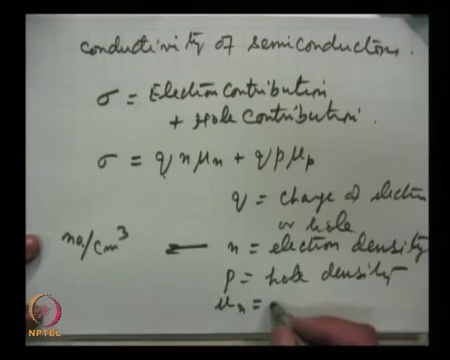 conductivity of semiconductors.
σ = Electron contribution
+ Hole contribution.
σ = q n μn + q p μp
q = charge of electron
or hole
no/cm³ ← n = electron density
p = hole density
μn =
NPTEL